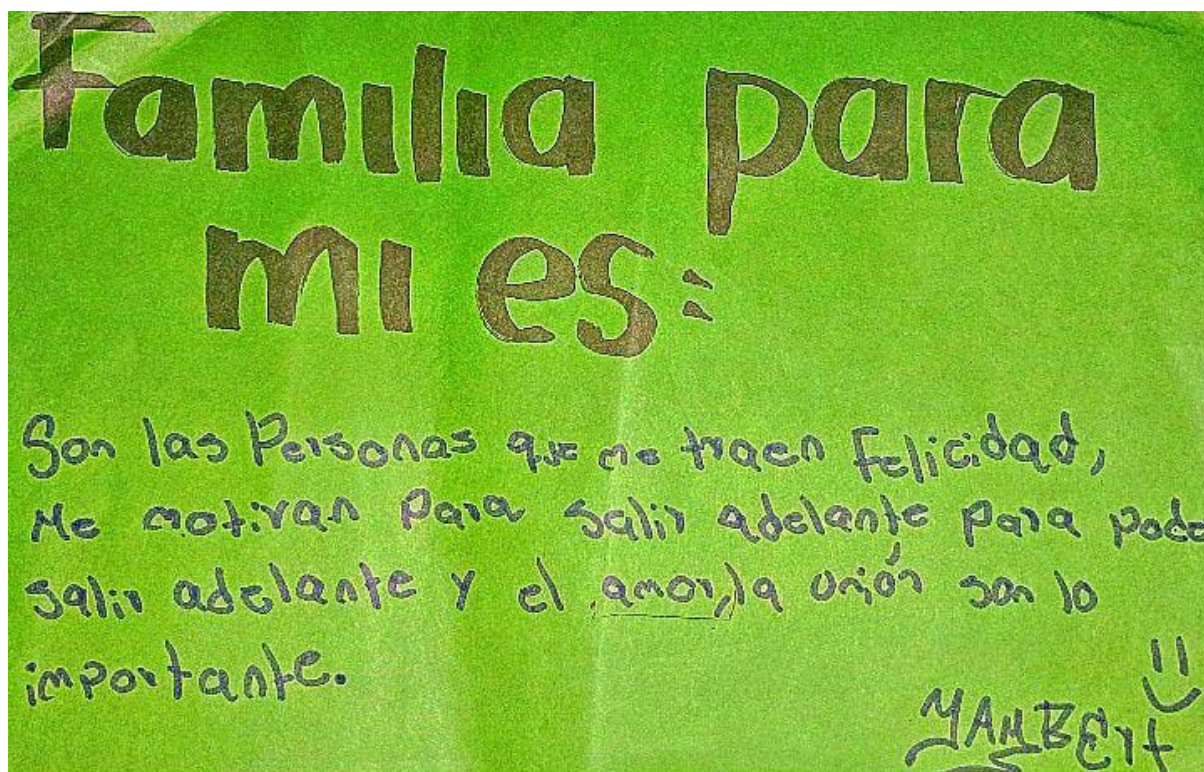 Familia para
mi es:
Son las Personas que me traen Felicidad,
Me motivan para salir adelante para pode
salir adelante y el amor, la unión son lo
importante.
YAMBErt